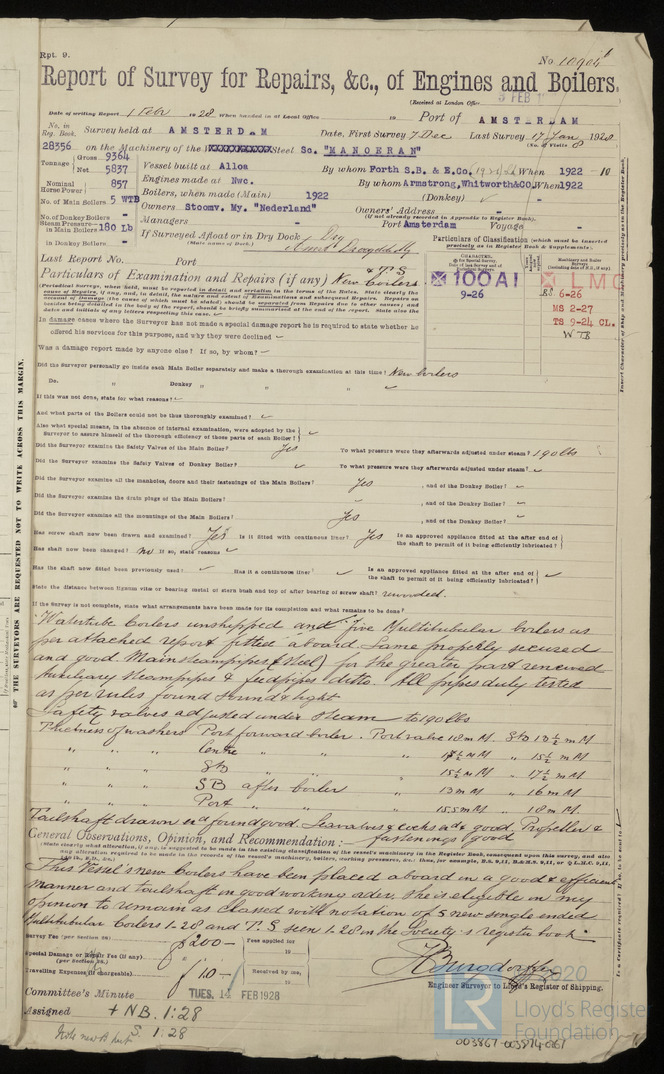 Rpt. 9.
No 10904
Report of Survey for Repairs, &c., of Engines and Boilers.
(Received at London Office 3 FEB 1
Date of writing Report 1 Febr 1928 When handed in at Local Office 19 Port of AMSTERDAM
No. in Reg. Book. Survey held at AMSTERDAM Date, First Survey 7 Dec Last Survey 17 Jan 1928
(No. of Visits 8
28356 on the Machinery of the Steel Sc. "MANOERAN"
Tonnage Gross 9364
Net 5837
Vessel built at Alloa By whom Forth S.B. & E.Co. When 1922 - 10
Nominal Horse Power 857
Engines made at Nwc. By whom Armstrong,Whitworth&CO. When 1922
No. of Main Boilers 5 WTB
Boilers, when made (Main) 1922 (Donkey)
No. of Donkey Boilers -
Owners Stoomv. My. "Nederland" Owners' Address
(If not already recorded in Appendix to Register Book).
Steam Pressure— in Main Boilers 180 Lb
Managers - Port Amsterdam Voyage -
in Donkey Boilers -
If Surveyed Afloat or in Dry Dock Dry
(State name of Dock.)
Particulars of Classification (which must be inserted precisely as in Register Book & Supplements).
Last Report No. Port
Particulars of Examination and Repairs (if any) New boilers & T.S
100A1
9-26
LMC
BS 6-26
MS 2-27
TS 9-24 CL.
WTB
In damage cases where the Surveyor has not made a special damage report he is required to state whether he
offered his services for this purpose, and why they were declined
Was a damage report made by anyone else? If so, by whom?
Did the Surveyor personally go inside each Main Boiler separately and make a thorough examination at this time? New boilers
Do. " Donkey " " "
If this was not done, state for what reasons?
And what parts of the Boilers could not be thus thoroughly examined?
Also what special means, in the absence of internal examination, were adopted by the
Surveyor to assure himself of the thorough efficiency of those parts of each Boiler?
Did the Surveyor examine the Safety Valves of the Main Boiler? Yes To what pressure were they afterwards adjusted under steam? 190 lbs
Did the Surveyor examine the Safety Valves of Donkey Boiler? To what pressure were they afterwards adjusted under steam?
Did the Surveyor examine all the manholes, doors and their fastenings of the Main Boilers? Yes , and of the Donkey Boiler?
Did the Surveyor examine the drain plugs of the Main Boilers? , and of the Donkey Boiler?
Did the Surveyor examine all the mountings of the Main Boilers? Yes , and of the Donkey Boiler?
Has screw shaft now been drawn and examined? Yes Is it fitted with continuous liner? Yes Is an approved appliance fitted at the after end of
the shaft to permit of it being efficiently lubricated?
Has shaft now been changed? no If so, state reasons
Has the shaft now fitted been previously used? Has it a continuous liner? Is an approved appliance fitted at the after end of
the shaft to permit of it being efficiently lubricated?
State the distance between lignum vitæ or bearing metal of stern bush and top of after bearing of screw shaft? rewooded.
If the Survey is not complete, state what arrangements have been made for its completion and what remains to be done?
Watertube boilers unshipped and five Multitubular boilers as
per attached report fitted aboard. Same properly secured
and good. Mainsteampipes (steel) for the greater part renewed
Auxiliary steampipes & feedpipes ditto. All pipes duly tested
as per rules found sound & tight
Safety valves adjusted under steam to 190 lbs
Thickness of washers Port forward boiler. Port valve 12 mM. Stb 13½ mM
" " " Centre " 15½ mM
" " " Stb " 15½ mM " 17½ mM
" " " SB after boiler " 13 mM " 16 mM
" " " Port " " 15.5 mM " 18 mM
Tailshaft drawn and found good. Seavalves & cocks ad & good. Propeller &
fastenings good
General Observations, Opinion, and Recommendation:—
This Vessel's new boilers have been placed aboard in a good & efficient
manner and tailshaft in good working order she is eligible in my
opinion to remain as classed with notation of 5 new single ended
Multitubular boilers 1.28 and T.S. seen 1.28 in the Society's register book.
Survey Fee (per Section 28) £ 200— Fees applied for
Special Damage or Repair Fee (if any)
(per Section 28.)
Travelling Expenses (if chargeable) £ 10— Received by me,
Engineer Surveyor to Lloyd's Register of Shipping.
Committee's Minute TUES. 14 FEB 1928
Assigned + NB. 1:28
S. 1.28
OF THE SURVEYORS ARE REQUESTED NOT TO WRITE ACROSS THIS MARGIN.
LR
2020
Lloyd's Register
Foundation
003867-003874-0267